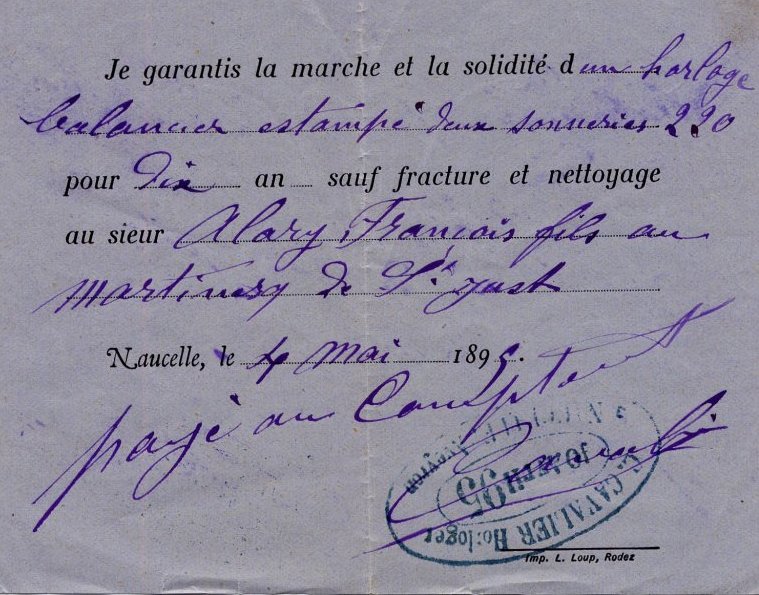 Je garantis la marche et la solidité d un horloge
balancier estampé deux sonneries 220
pour dix an sauf fracture et nettoyage
au sieur Alary François fils au
martinesq de St just
Naucelle, le 4 mai 1895.
payé au Comptant
CAVALIER Horloger
JOSEPH
95
Imp. L. Loup, Rodez